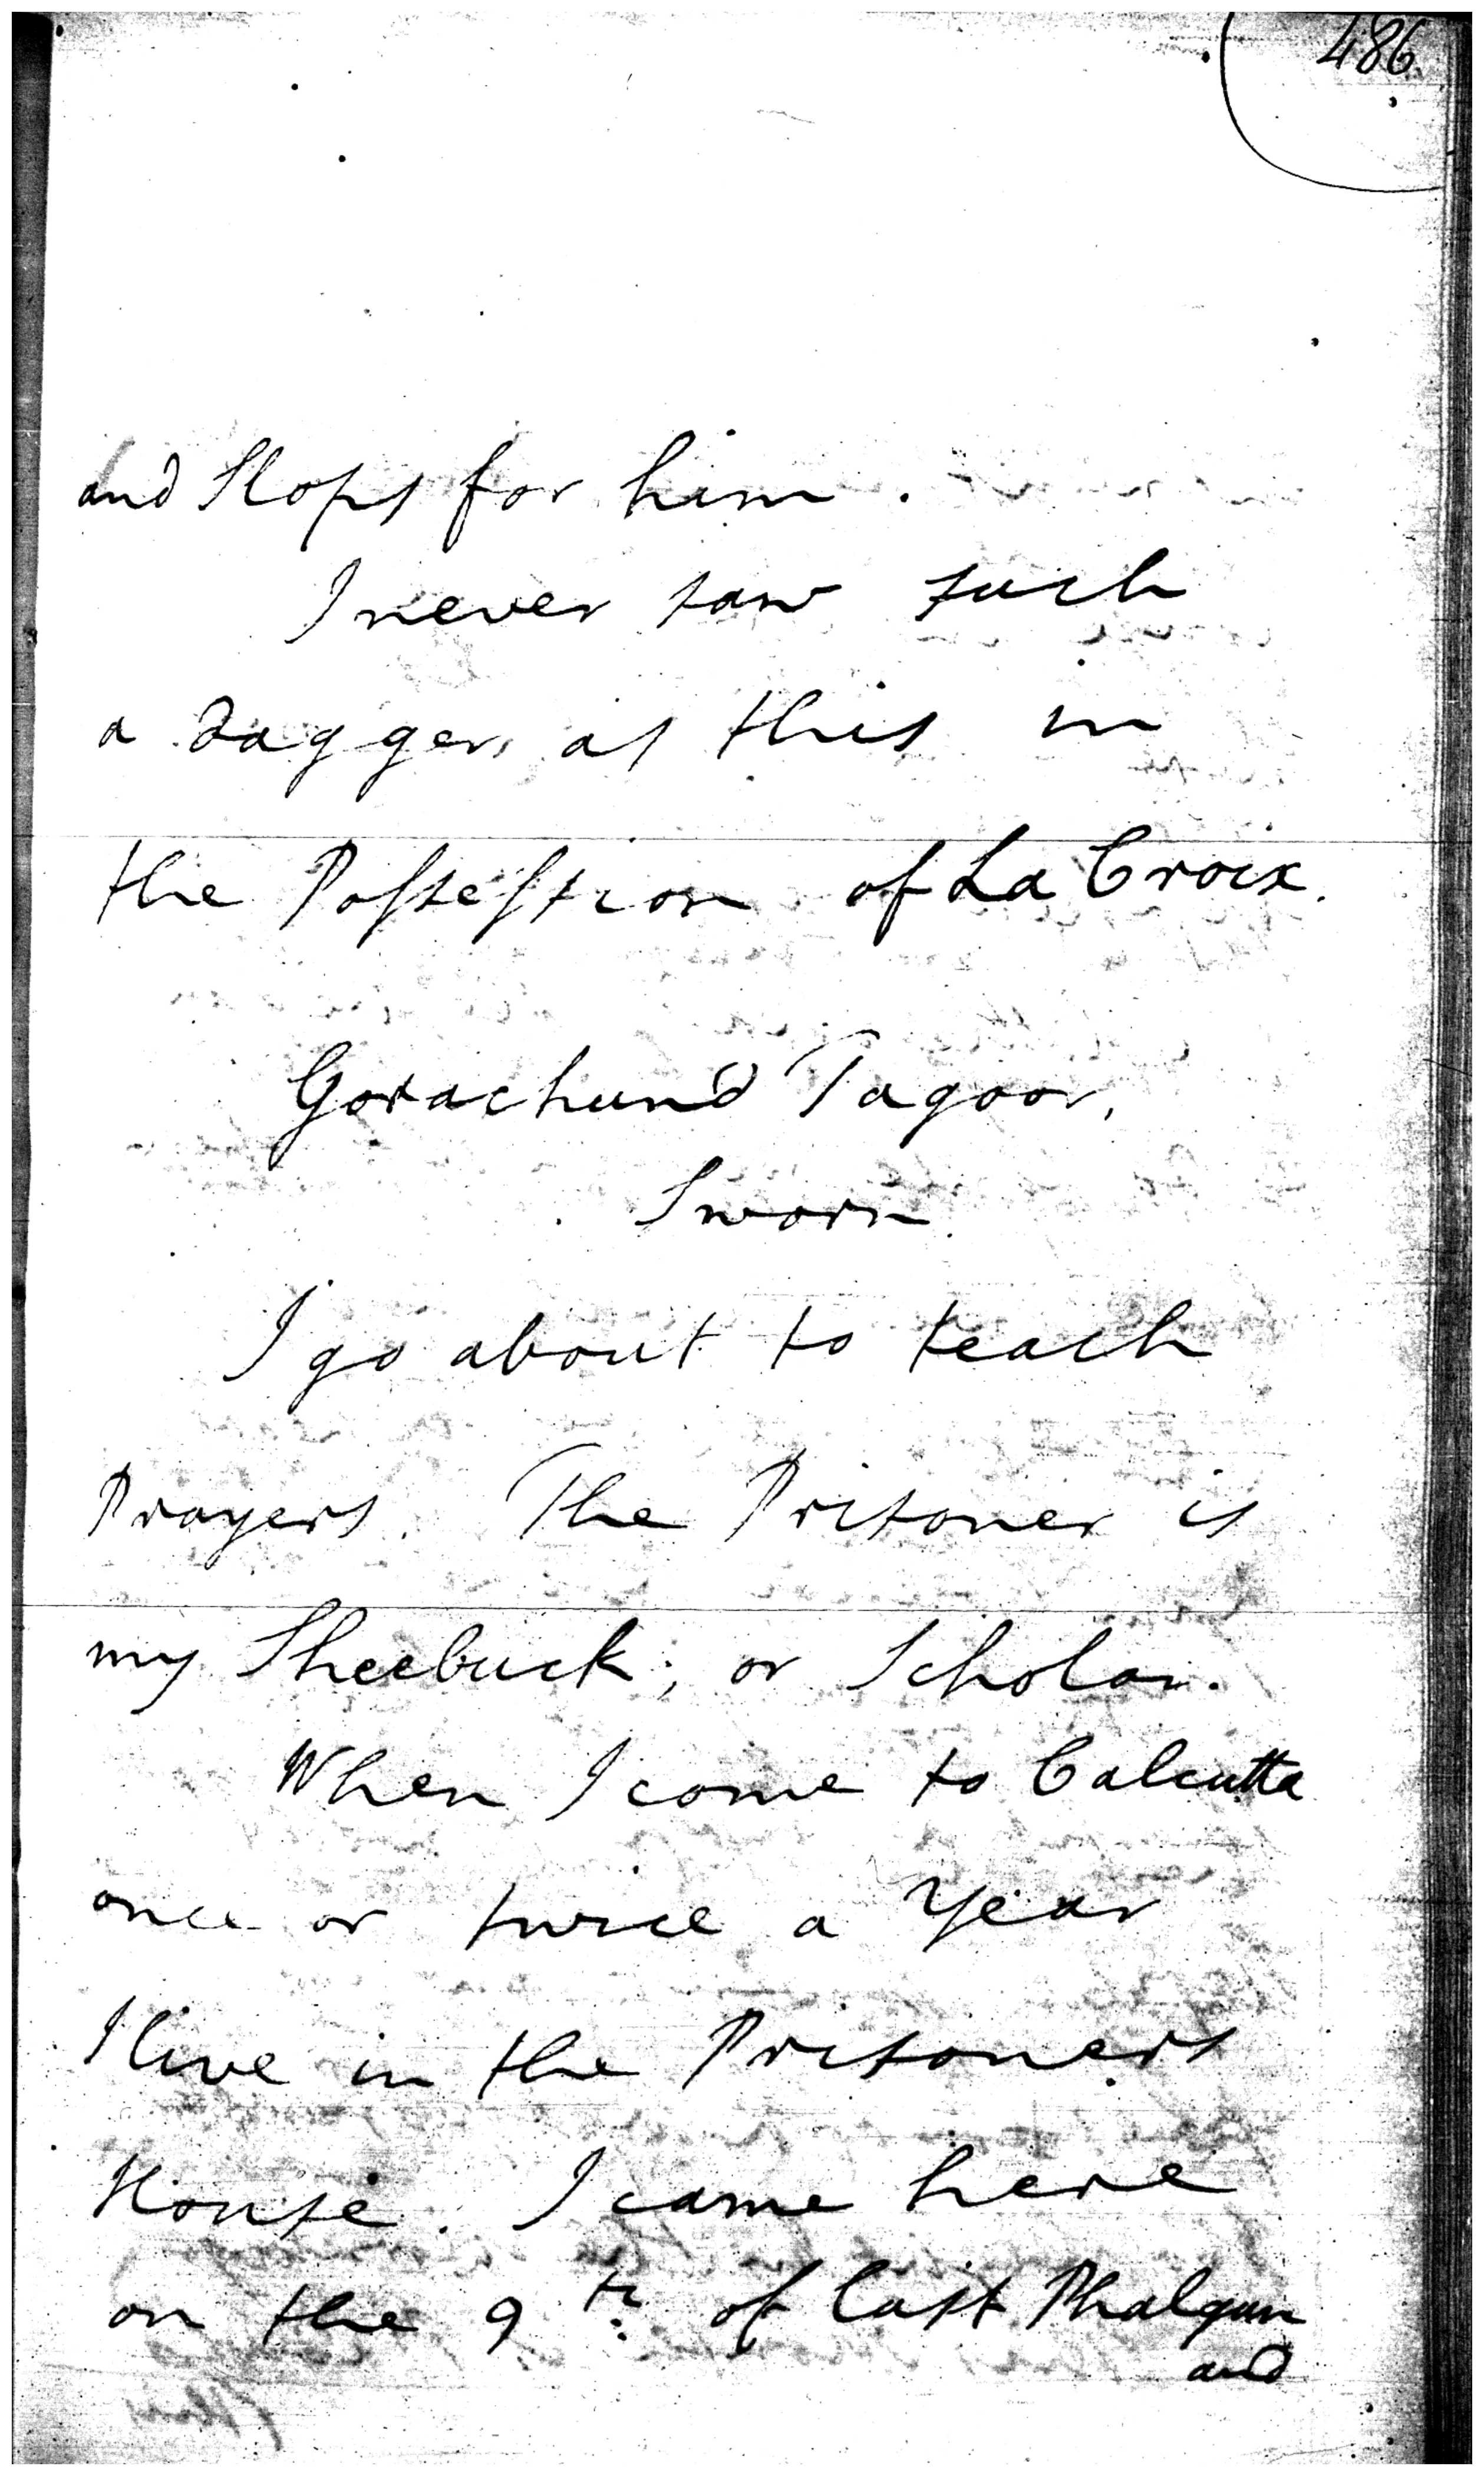 486
and Slops for him.
I never saw such
a dagger, as this in
the Possession of La Croix.
Gorachund Tagoor,
Sworn.
I go about to teach
Prayers. The Prisoner is
my Sheebuck; or Scholar.
When I come to Calcutta
once or twice a Year
I live in the Prisoners
House. I came here
on the 9th. of last Phalgun
and